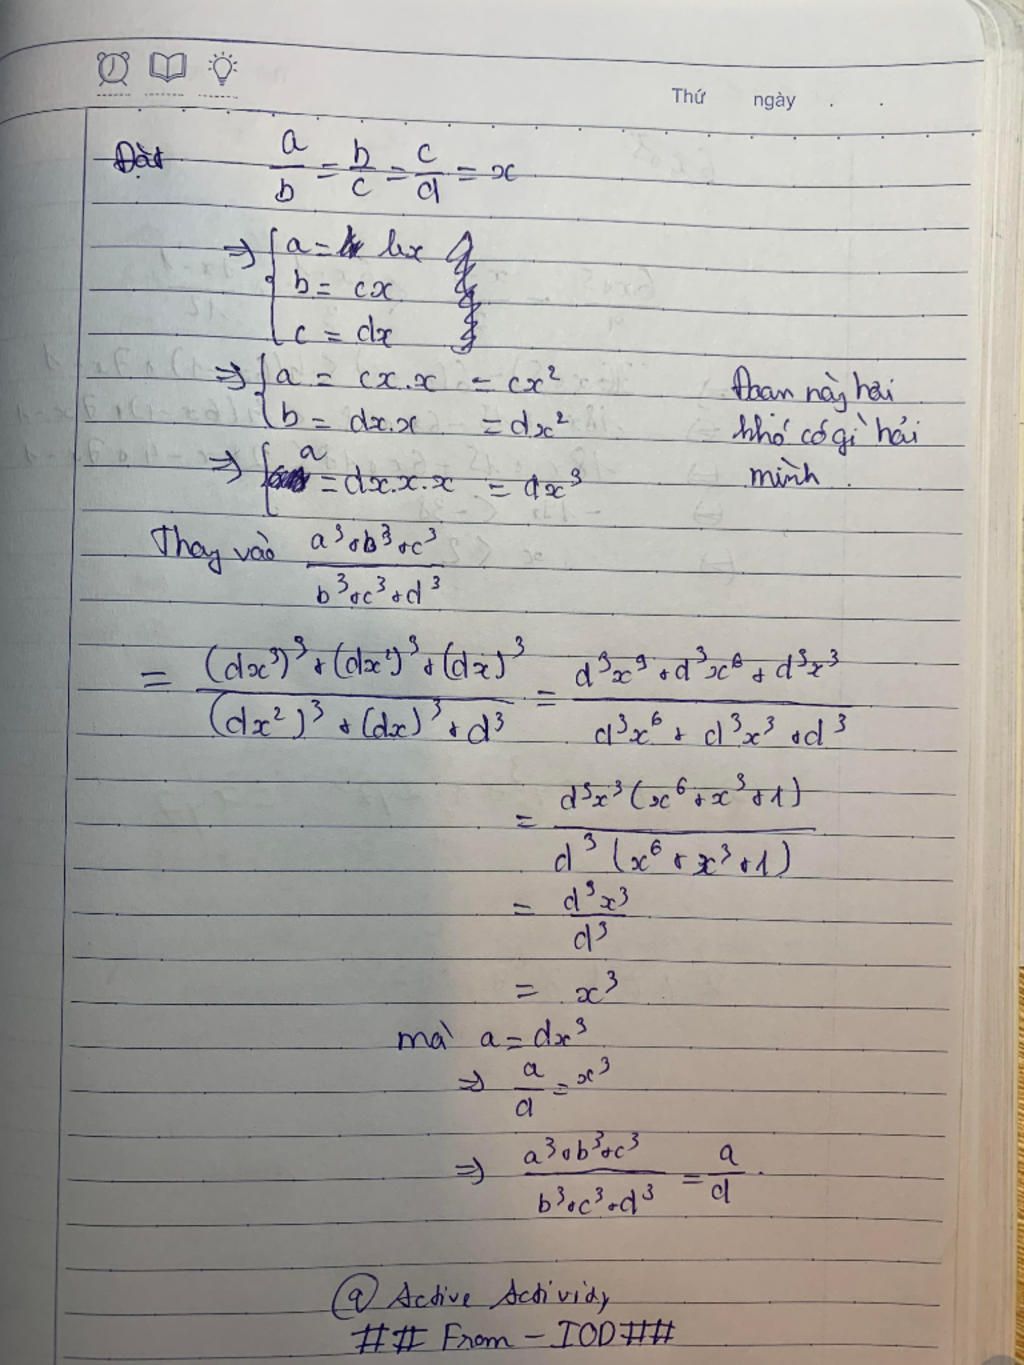 Thứ ngày . .
Đặt a/b = b/c = c/d = x
⇒ { a = bx
b = cx
c = dx
⇒ { a = cx.x = cx²
Đoạn này hơi
{ b = dx.x = dx²
khó có gì hỏi
⇒ { a = dx.x.x = dx³
mình.
Thay vào (a³+b³+c³)/(b³+c³+d³)
= ((dx³)³+(dx²)³+(dx)³)/((dx²)³+(dx)³+d³) = (d³x⁹+d³x⁶+d³x³)/(d³x⁶+d³x³+d³)
= (d³x³(x⁶+x³+1))/(d³(x⁶+x³+1))
= d³x³/d³
= x³
mà a = dx³
⇒ a/d = x³
⇒ (a³+b³+c³)/(b³+c³+d³) = a/d.
@ Active Actividy
## From - IOD##